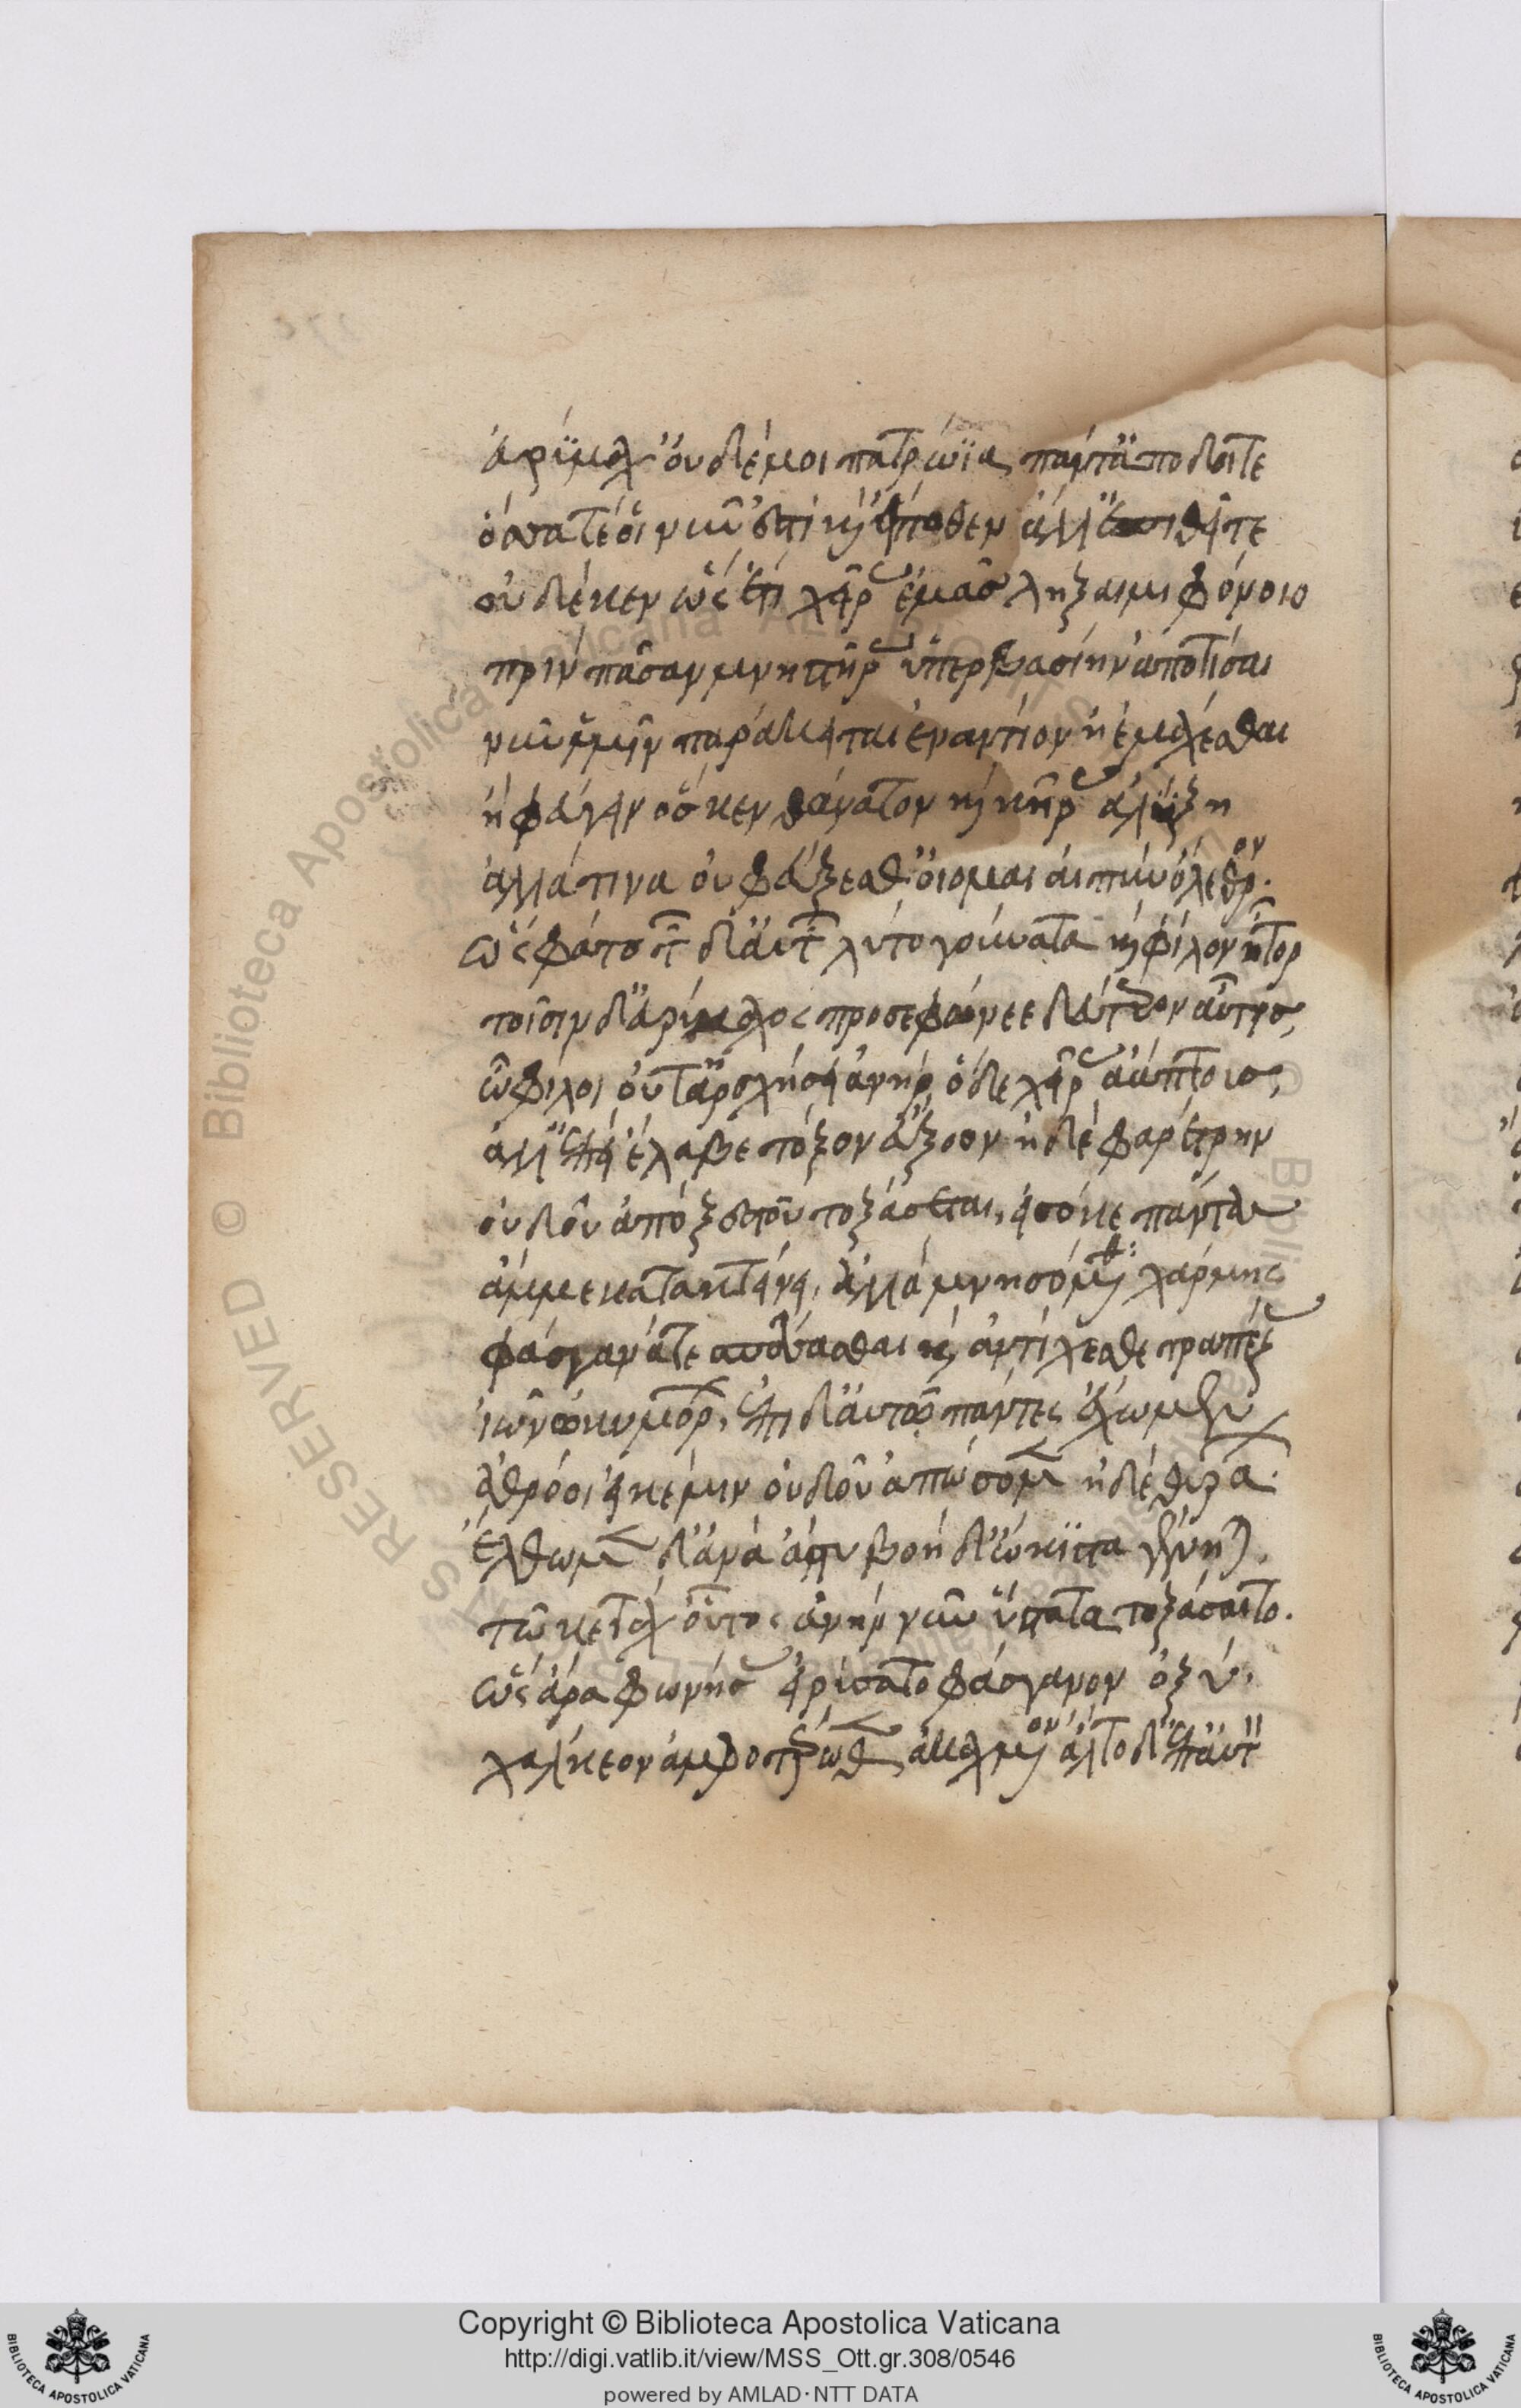 ἐυρύμαχ' ὀυδέ μοι πατρώϊα πάντ' ἀποδοῖτε
ὅσσα τέ ὔμμι νῦν ἐστὶ καὶ εἴποθεν ἄλλ' ἐπιθεῖτε
οὐδέ κεν ὣς ἔτι χεῖρας ἐμὰς λήξαιμι φόνοιο
πρίν πᾶσαν μνηστῆρας ὑπερβασίην ἀποτῖσαι
νῦν ὑμῖν παράκειται ἐναντίον ἠὲ μάχεσθαι
ἢ φεύγειν ὅς κεν θάνατον καὶ κῆρας ἀλύξῃ
ἀλλά τινα οὐ φεύξεσθ' ὀίομαι αἰπὺν ὄλεθρον.
ὣς φάτο τῶν δ' αὐτοῦ λύτο γούνατα καὶ φίλον ἦτορ
τοῖσιν δ' ἐυρύμαχος προσεφώνεε δεύτερον αὖτις,
ὦ φίλοι οὐ γὰρ σχήσει ἀνὴρ ὅδε χεῖρας ἀάπτους,
ἀλλ' ἐπεὶ ἔλαβε τόξον ἐύξοον ἠδὲ φαρέτρην
οὐδοῦ ἄπο ξεστοῦ τοξάσσεται, εἰσόκε πάντας
ἄμμε κατακτείνει, ἀλλὰ μνησόμεθα χάρμης
φάσγανά τε σπάσασθαι καὶ ἀντίσχεσθε τραπέζας
ἰῶν ὠκυμόρων, ἐπὶ δ' αὐτῷ πάντες ἔχωμεν
ἀθρόοι εἴ κέ μιν οὐδοῦ ἀπώσομεν ἠδὲ θυράων.
ἔλθωμεν δ' ἀνὰ ἄστυ βοὴ δ' ὤκιστα γένηται.
τῷ κε τάχ' οὗτος ἀνὴρ νῦν ὕστατα τοξάσσαιτο.
ὣς ἄρα φωνήσας εἰρύσατο φάσγανον ὀξὺ,
χάλκεον ἀμφοτέρωθεν ἀκαχμένον ἆλτο δ' ἐπ' αὐτῷ
Copyright © Biblioteca Apostolica Vaticana
http://digi.vatlib.it/view/MSS_Ott.gr.308/0546
powered by AMLAD·NTT DATA